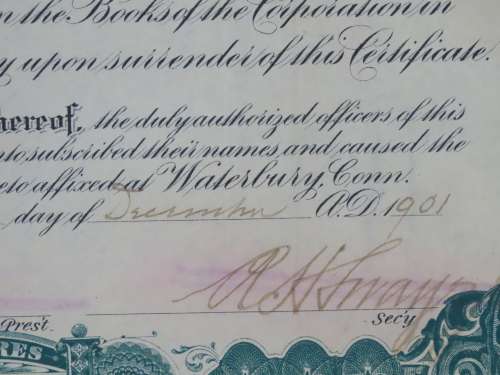 the Books of the Corporation in
y upon surrender of this Certificate.
hereof, the duly authorized officers of this
nto subscribed their names, and caused the
eto affixed at Waterbury, Conn.
day of December A.D. 1901
Prest. Secy
RES